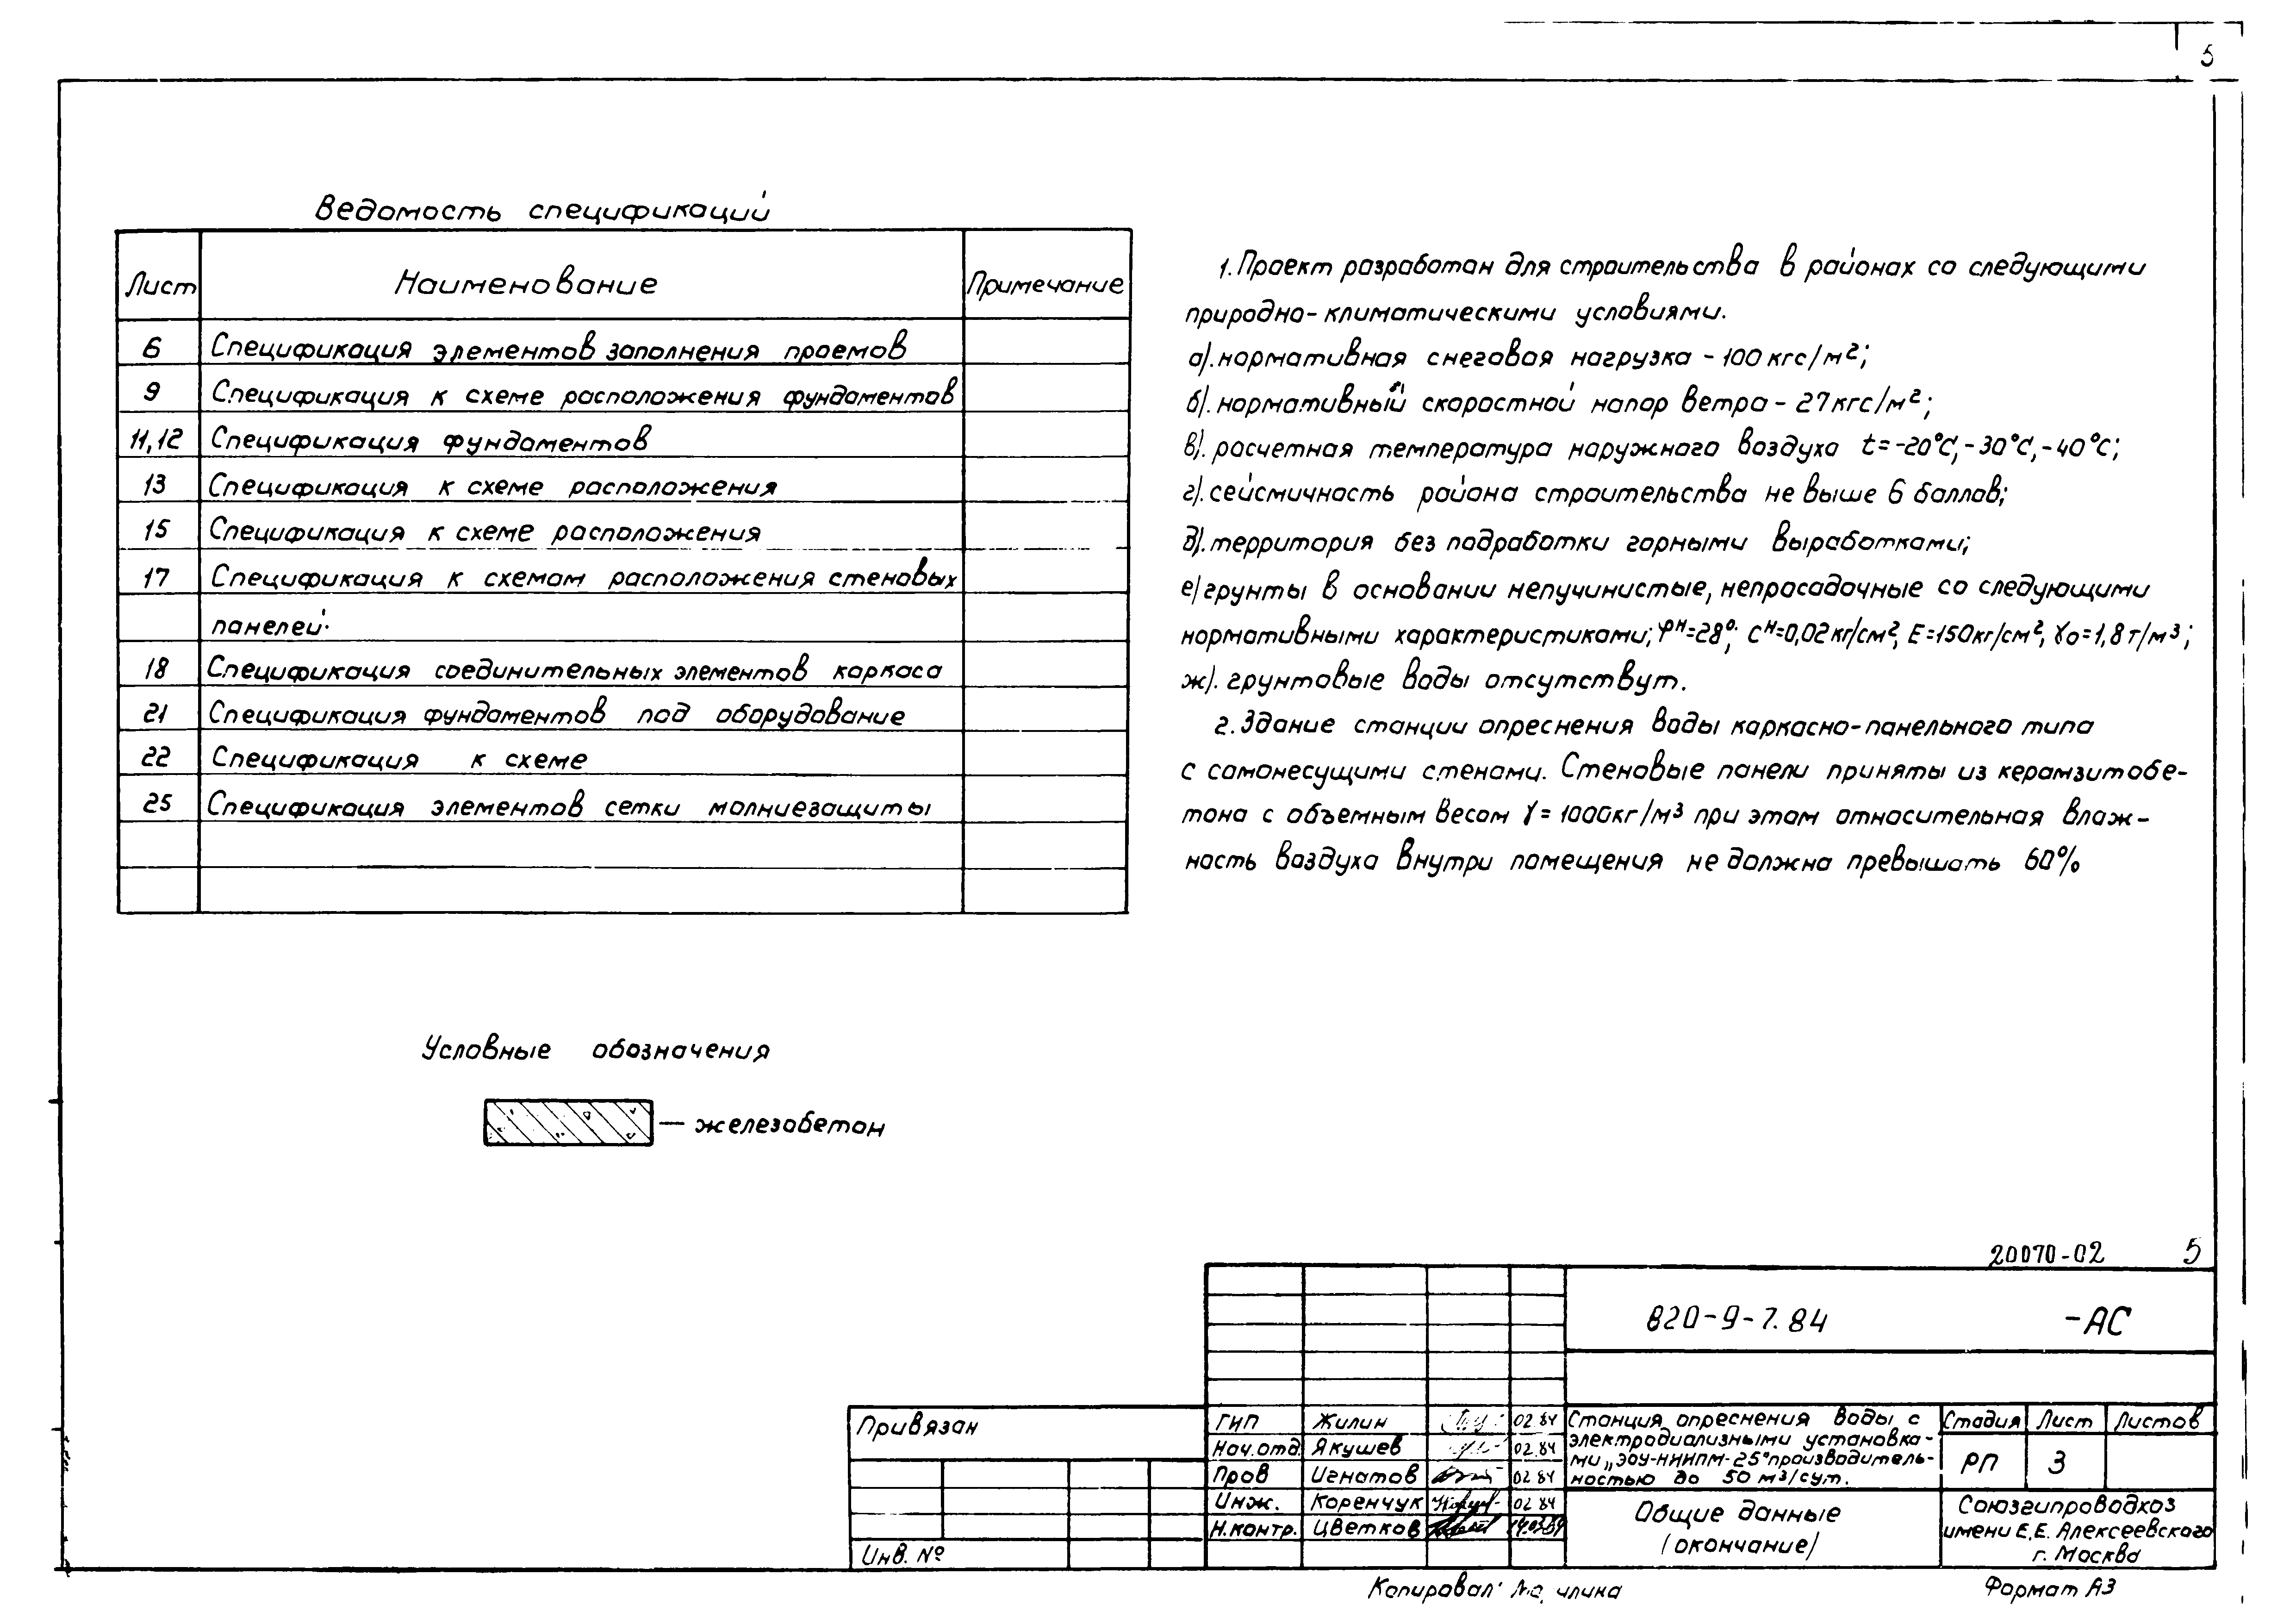 5
Ведомость спецификаций
Лист Наименование Примечание
6 Спецификация элементов заполнения проемов
9 Спецификация к схеме расположения фундаментов
11,12 Спецификация фундаментов
13 Спецификация к схеме расположения
15 Спецификация к схеме расположения
17 Спецификация к схемам расположения стеновых
панелей.
18 Спецификация соединительных элементов каркаса
21 Спецификация фундаментов под оборудование
22 Спецификация к схеме
25 Спецификация элементов сетки молниезащиты
1. Проект разработан для строительства в районах со следующими
природно-климатическими условиями.
а). нормативная снеговая нагрузка - 100 кгс/м²;
б). нормативный скоростной напор ветра - 27 кгс/м²;
в). расчетная температура наружного воздуха t=-20°С, -30°С, -40°С;
г). сейсмичность района строительства не выше 6 баллов;
д). территория без подработки горными выработками;
е) грунты в основании непучинистые, непросадочные со следующими
нормативными характеристиками; φᴴ=28°; Сᴴ=0,02 кг/см², Е=150кг/см², γо=1,8 т/м³;
ж). грунтовые воды отсутствут.
2. Здание станции опреснения воды каркасно-панельного типа
с самонесущими стенами. Стеновые панели приняты из керамзитобе-
тона с объемным весом γ = 1000кг/м³ при этом относительная влаж-
ность воздуха внутри помещения не должна превышать 60%
Условные обозначения
— железобетон
20070-02 5
820-9-7.84 -АС
Привязан
Инв. №
ГИП Жилин 02.84
Нач.отд. Якушев 02.84
Пров Игнатов 02 84
Инж. Коренчук 02 84
Н.контр. Цветков
Станция опреснения воды с
электродиализными установка-
ми „ЭОУ-НИИПМ-25" производитель-
ностью до 50 м³/сут.
Стадия Лист Листов
РП 3
Общие данные
(окончание)
Союзгипроводхоз
имени Е.Е. Алексеевского
г. Москва
Копировал:
Формат А3